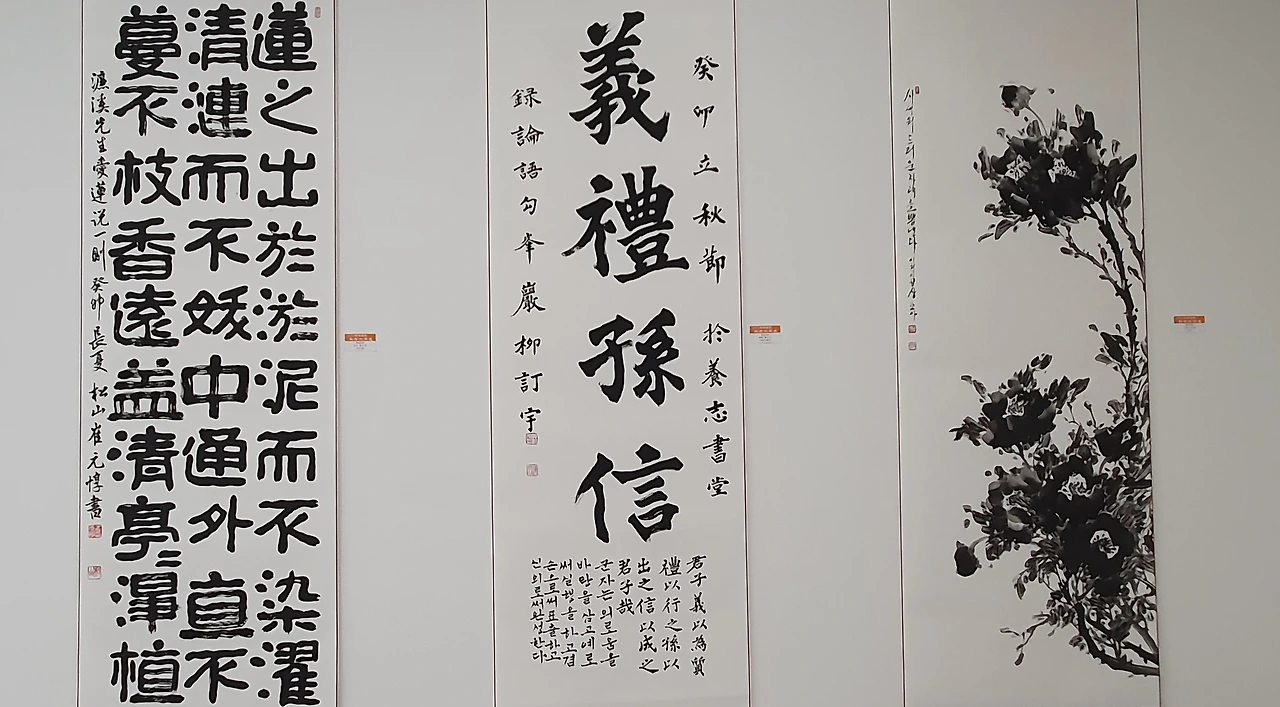 蓮之出於淤泥而不染濯
清漣而不妖中通外直不
蔓不枝香遠益清亭〻淨植
濂溪先生愛蓮说一則 癸卯長夏 松山崔元惇書
癸卯立秋節 於養志書堂
義禮孫信
録論語句 峯巖 柳訂宇
君子義以為質
禮以行之孫以
出之信以成之
君子哉
군자는 의로움을
바탕을 삼고 예로
써 실행을 하고 겸
손으로써 표출하고
신의로써 완성한다